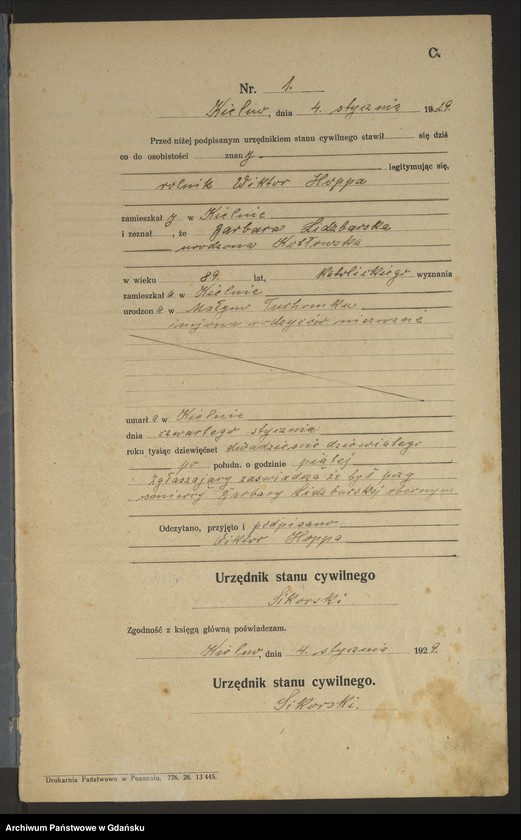 C.
Nr. 1.
Kielno, dnia 4. stycznia 1929.
Przed niżej podpisanym urzędnikiem stanu cywilnego stawił się dziś
co do osobistości znany
legitymując się,
rolnik Wiktor Hoppa
zamieszkały w Kielnie
i zeznał, że Barbara Lidzbarska
urodzona Kotłowska
w wieku 89. lat, katolickiego wyznania
zamieszkała w Kielnie
urodzona w Małym Tuchomku
imiona rodziców nieznane
umarła w Kielnie
dnia czwartego stycznia
roku tysiąc dziewięćset dwudziestie dziewiątego
po połudn. o godzinie piątej
Zgłaszający zaświadcza że był przy
śmierci Barbary Lidzbarskiej obecnym
Odczytano, przyjęto i podpisano
Wiktor Hoppa
Urzędnik stanu cywilnego
Sikorski.
Zgodność z księgą główną poświadczam.
Kielno, dnia 4. stycznia 1929.
Urzędnik stanu cywilnego.
Sikorski.
Drukarnia Państwowa w Poznaniu. 776. 28. 13 445.
Archiwum Państwowe w Gdańsku